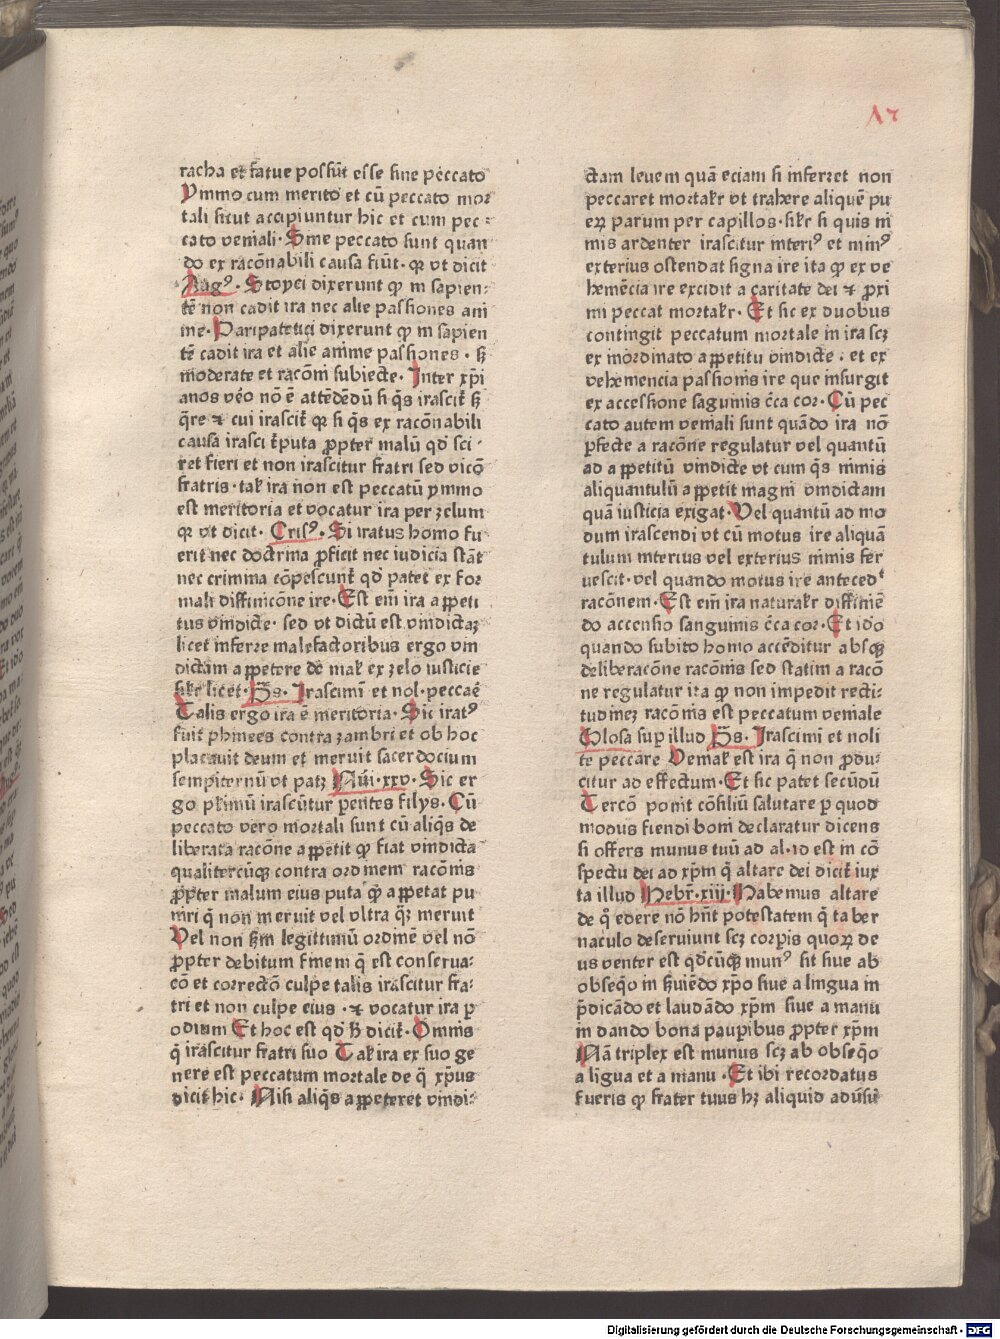 racha et fatue possūt esse sine peccato
Ymmo cum merito et cū peccato mor
tali sicut accipiuntur hic et cum pec⸗
cato veniali· Sine peccato sunt quan
do ex racōnabili causa fiūt· qꝛ vt dicit
Augꝰ· Stoyci dixerunt ꝙ in sapien⸗
tē non cadit ira nec alie passiones ani
me· Paripatetici dixerunt ꝙ in sapien
tē cadit ira et alie anime passiones · sꝫ
moderate et racōni subiecte· Inter xp̄i
anos vēo nō ē attēdēdū si q̄s irascit̄ sꝫ
q̄re ⁊ cui irascit̄ qꝛ si q̄s ex racōnabili
causa irascit̄ puta ꝓpter malū qd̄ sci⸗
ret fieri et non irascitur fratri sed vicō
fratris· tal̄ ira non est peccatū ymmo
est meritoria et vocatur ira per zelum
qꝛ vt dicit· Crisꝰ· Si iratus homo fu
erit nec doctrina ꝓficit nec iudicia stāt
nec crimina cōpescunt̄ qd̄ patet ex for
mali diffinicōne ire· Est em̄ ira appeti
tus vindicte· sed vt dictū est vindictaꝫ
licet inferre malefactoribus ergo vin
dictam appetere de mal̄ ex zelo iusticie
sil̄r licet· Ps· Irascimī et nol· peccaē
Talis ergo ira ē meritoria· Sic iratꝰ
fuit phinees contra zambri et ob hoc
placuit deum et meruit sacerdocium
sempiternū vt patꝫ Nūi·xxv· Sic er
go pl̄imū irascūtur pentes filys· Cū
peccato vero mortali sunt cū aliq̄s de
liberata racōne appetit ꝙ fiat vindicta
qualitercūqꝫ contra ordinem racōnis
ꝓpter malum eius puta ꝙ appetat pu
niri q̄ non meruit vel vltra q̄ꝫ meruit
Vel non sꝫm legittimū ordinē vel nō
ꝓpter debitum finem q̄ est conserua⸗
cō et correctō culpe talis irascitur fra⸗
tri et non culpe eius ·⁊ vocatur ira ꝑ
odium Et hoc est qd̄ hꝫ dicit̄· Omnis
q̄ irascitur fratri suo Tal̄ ira ex suo ge
nere est peccatum mortale de q̄ xp̄us
dicit hic· Nisi aliq̄s appeteret vindi⸗
17
ctam leuem quā eciam si inferret non
peccaret mortal̄r vt trahere aliquē pu
eꝝ parum per capillos·sil̄r si quis ni
mis ardenter irascitur interiꝰ et nimꝰ
exterius ostendat signa ire ita ꝙ ex ve
hemēcia ire excidit a caritate dei ⁊ ꝓxi
mi peccat mortal̄r· Et sic ex duobus
contingit peccatum mortale in ira scꝫ
ex inordinato appetitu vindicte · et ex
vehemencia passionis ire que insurgit
ex accessione saguinis c̄ca cor· Cū pec
cato autem veniali sunt quādo ira nō
ꝑfecte a racōne regulatur vel quantū
ad appetitū vindicte vt cum q̄s nimis
aliquantulū appetit magni vindictam
quā iusticia exigat· Vel quantū ad mo
dum irascendi vt cū motus ire aliquā
tulum interius vel exterius nimis fer
uescit· vel quando motus ire anteced̄t
racōnem· Est em̄ ira natural̄r diffiniē
do accensio sanguinis c̄ca cor· Et ido
quando subito homo accēditur absqꝫ
deliberacōne racōnis sed statim a racō
ne regulatur ita ꝙ non impedit recti⸗
tudineꝫ racōnis est peccatum veniale
Glosa suꝑ illud Ps· Irascimi et noli
te peccare Veniale est ira q̄ non ꝓdu⸗
citur ad effectum· Et sic patet secūdū
Tercō ponit cōsiliū salutare ꝑ quod
modus fiendi boni declaratur dicens
si offers munus tuū ad al·id est in cō
spectu dei ad xp̄m q̄ altare dei dicit̄ iux
ta illud Hebr̄·xiij· Habemus altare
de q̄ edere nō hn̄t potestatem q̄ taber
naculo deseruiunt scꝫ corꝑis quoꝝ de
us venter est qd̄cūqꝫ munꝰ sit siue ab
obseq̄o in suiēdo xp̄o siue a lingua in
p̄dicādo et laudādo xp̄m siue a manu
in dando bona pauꝑibus ꝓpter xp̄m
Nā triplex est munus scꝫ ab obseq̄o
a ligua et a manu · Et ibi recordatus
fueris ꝙ frater tuus hꝫ aliquid adūsū
Digitalisierung gefördert durch die Deutsche Forschungsgemeinschaft · DFG